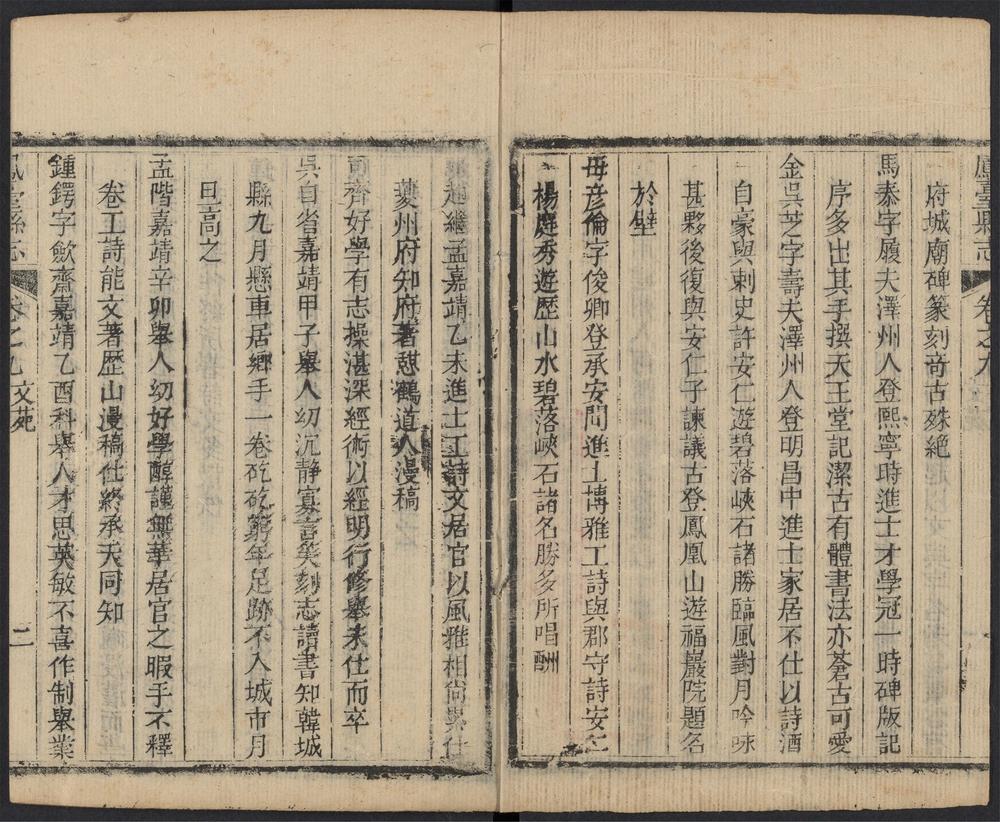 鳳臺縣志
卷之九
府城廟碑篆刻奇古殊絕
馬泰字履夫澤州人登熙寧時進士才學冠一時碑版記
序多出其手撰天王堂記潔古有體書法亦蒼古可愛
金吳芝字壽夫澤州人登明昌中進士家居不仕以詩酒
自豪與刺史許安仁遊碧落峽石諸勝臨風對月吟咏
甚夥後復與安仁子諫議古登鳳凰山遊福巖院題名
於壁
毋彥倫字俊卿登承安間進士博雅工詩與郡守詩安仁
楊庭秀遊歷山水碧落峽石諸名勝多所唱酬
趙繼孟嘉靖乙未進士工詩文居官以風雅相尚
仕
夔州府知府著憩鶴道人漫稿
齊好學有志操湛深經術以經明行修舉未仕而卒
吳自省嘉靖甲子舉人幼沉静寡言笑刻志讀書知韓城
縣九月懸車居鄉手一卷矻矻窮年足跡不入城市月
旦高之
孟階嘉靖辛卯舉人幼好學醇謹無華居官之暇手不釋
卷工詩能文著歷山漫稿仕終承天同知
鍾鍔字歛齋嘉靖乙酉科舉人才思英敏不喜作制舉業
鳳臺縣志
卷之九
文苑
二